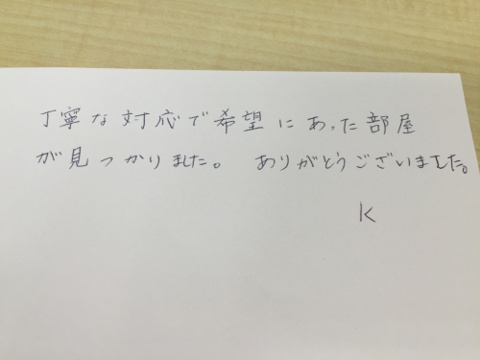 丁寧な対応で希望にあった部屋
が見つかりました。 ありがとうございました。
K